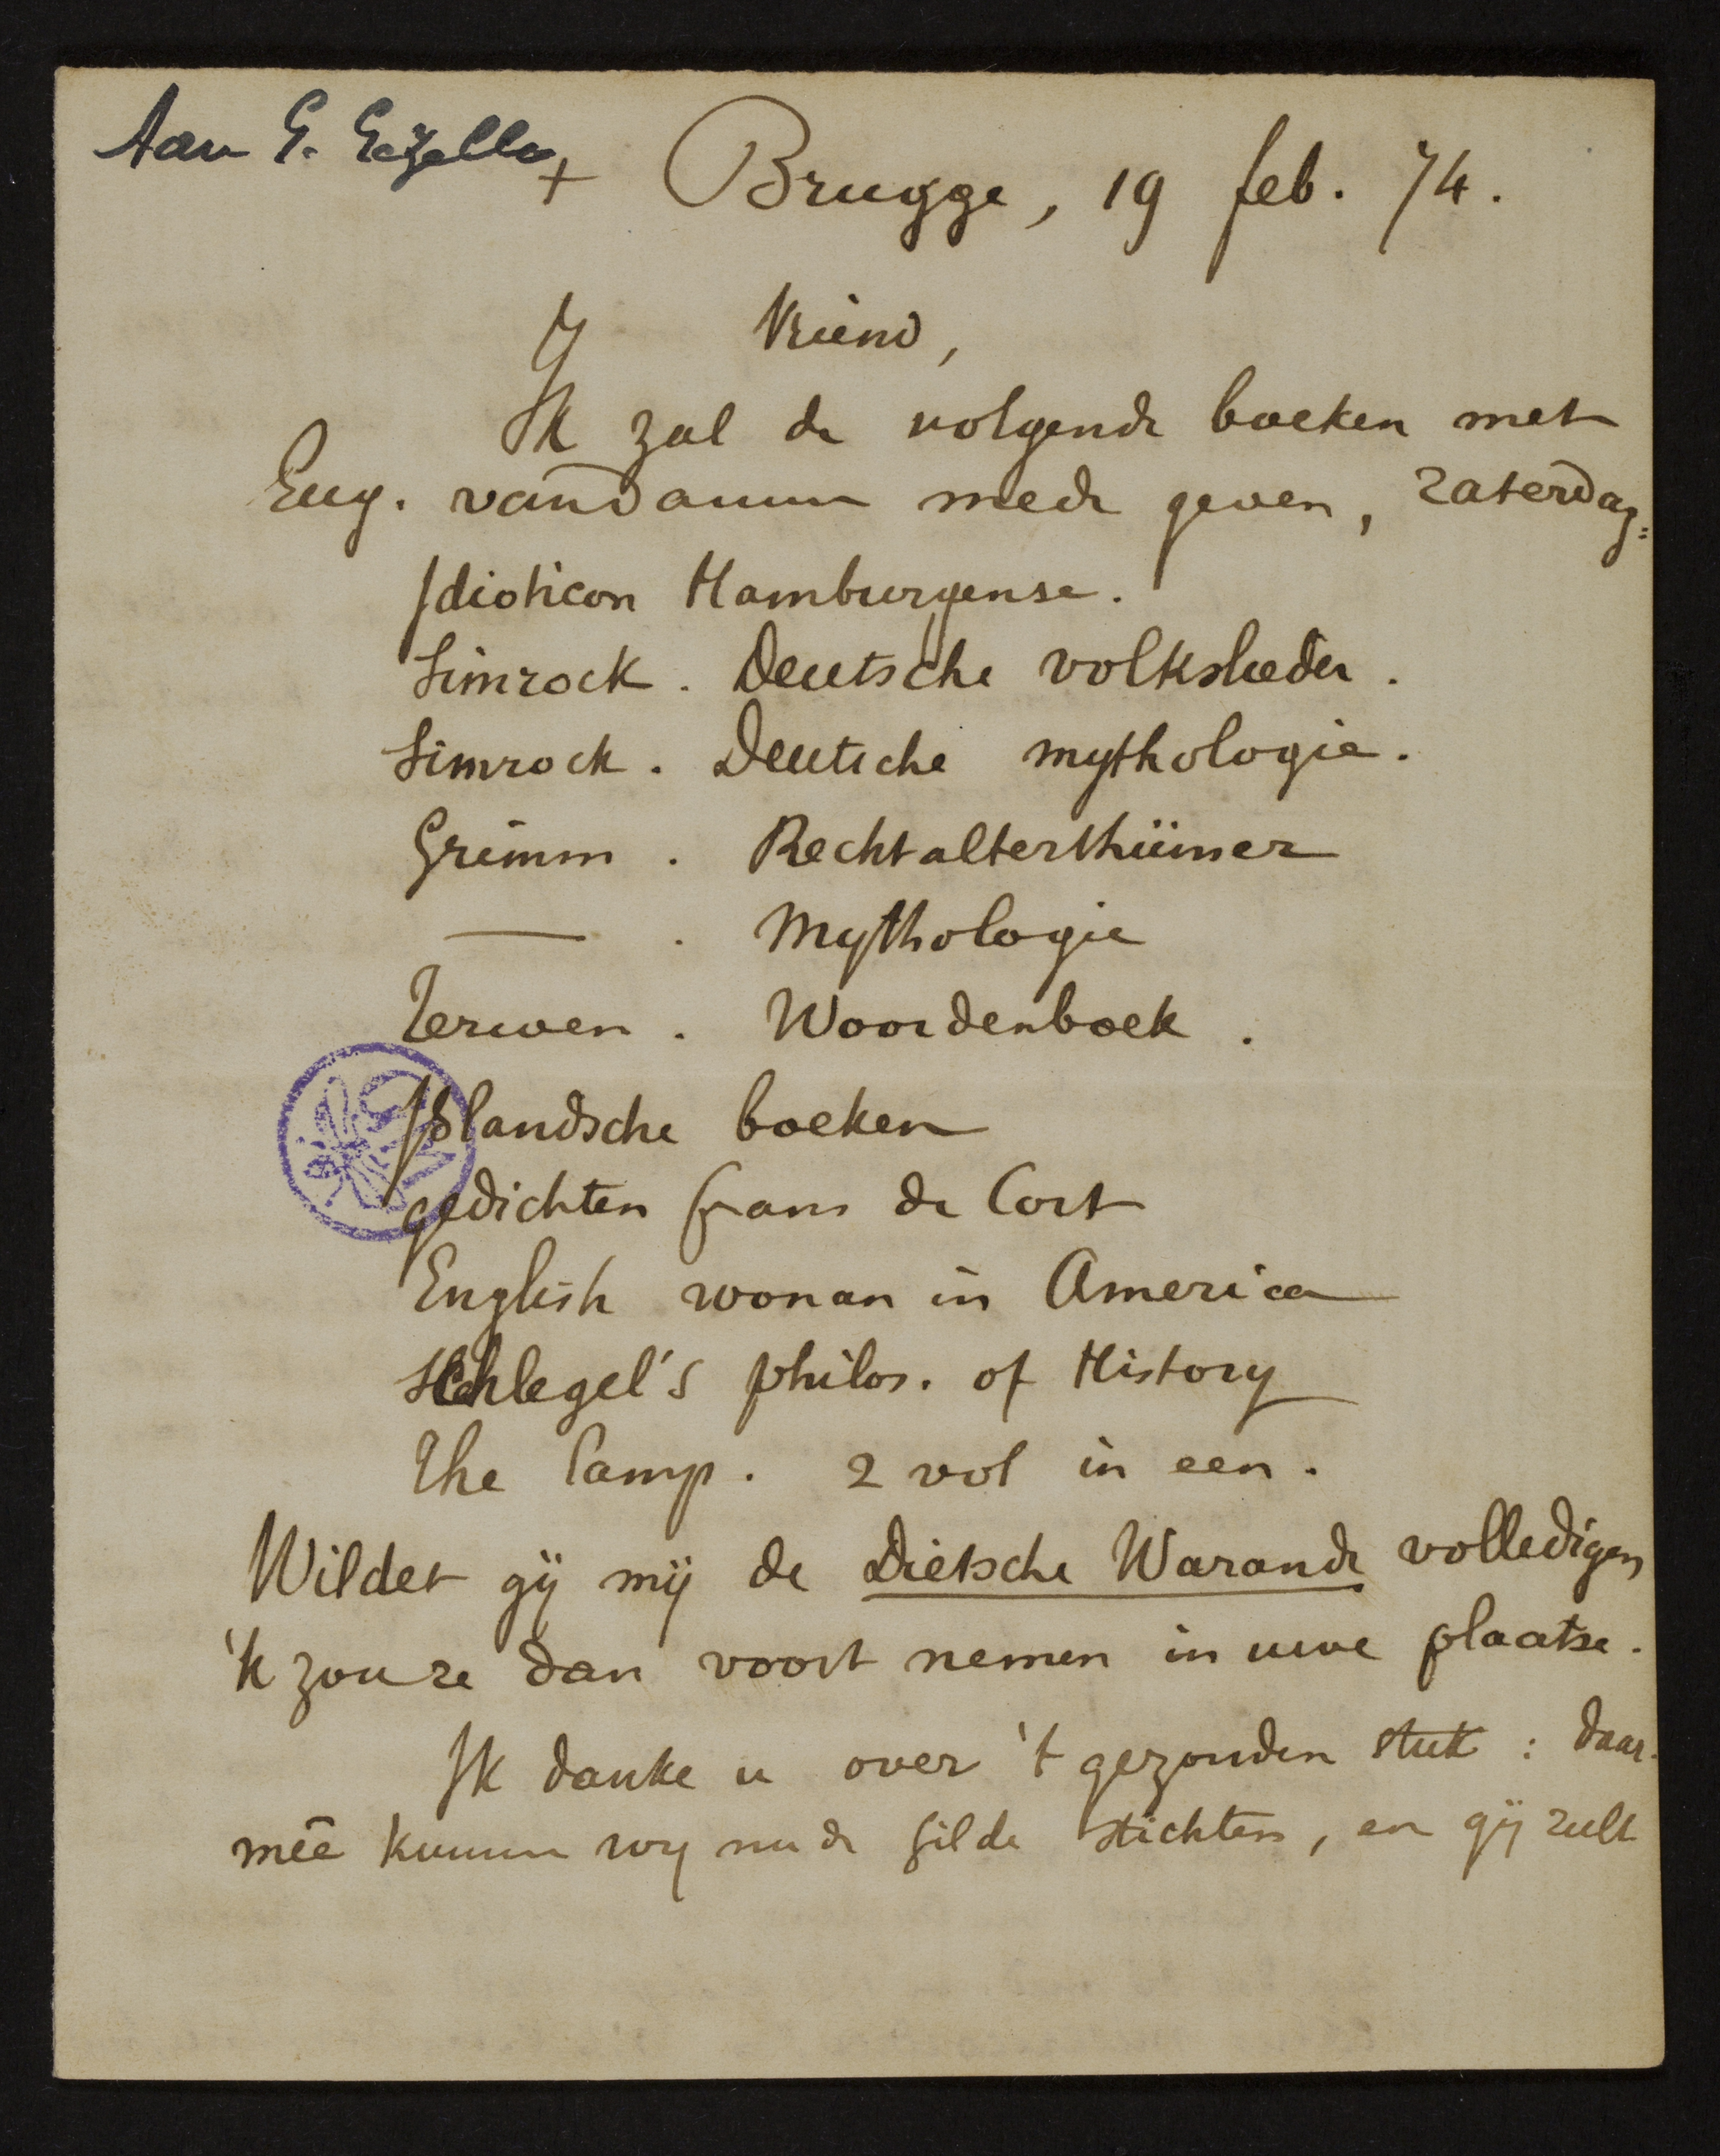 Aan G. Gezelle
+ Brugge, 19 feb. 74.
Vriend,
Ik zal de volgende boeken met
Eug. vandamm mede geven, zaterdag:
Idioticon Hamburgense.
Simrock. Deutsche volkslieder.
Simrock. Deutsche mythologie.
Grimm. Rechtalterthümer
—— . Mythologie
Terwen. Woordenboek.
Islandsche boeken
gedichten frans de Cort
English woman in America
Schlegel's philos. of History
The Lamp. 2 vol in een.
Wildet gij mij de Dietsche Warande volledigen
'k zou ze dan voort nemen in uwe plaatse.
Ik danke u over 't gezonden stuk: daar-
meê kunnen wy nu de gilde stichten, en gij zult